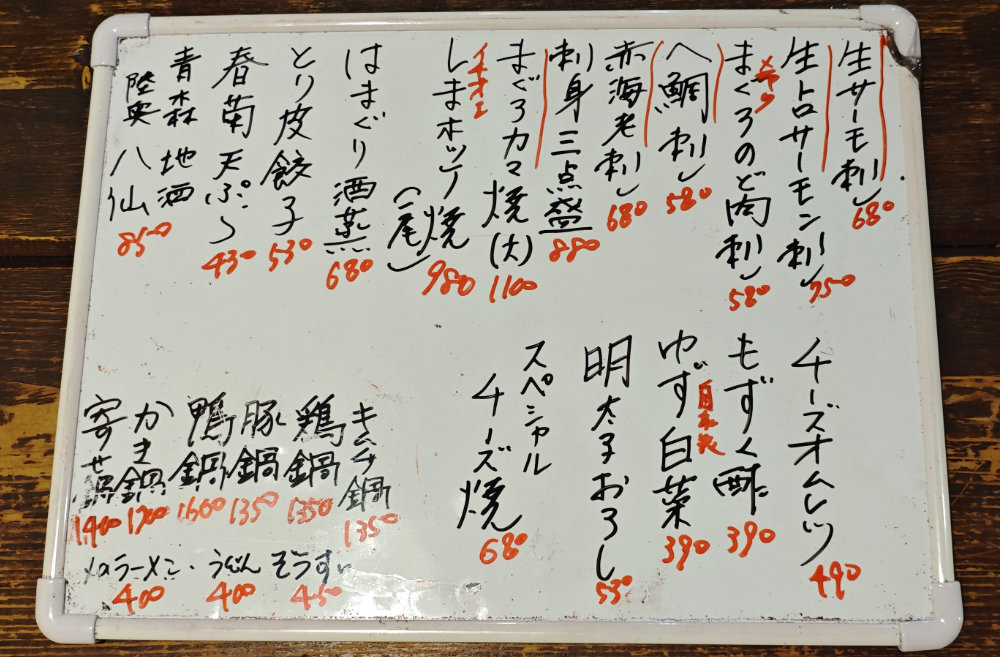 生サーモン刺し 680
生トロサーモン刺し 750
まぐろのど肉刺し 580
八鯛刺し 580
赤海老刺し 680
刺身三点盛 880
まぐろカマ焼(大) 1100
しまホッケ焼(一尾) 980
はまぐり酒蒸 680
とり皮餃子 530
春菊天ぷら 430
青森地酒
陸奥八仙 850
チーズオムレツ 490
もずく酢 390
自家製
ゆず白菜 390
明太子おろし 530
スペシャル
チーズ焼 680
キムチ鍋 1350
鶏鍋 1350
豚鍋 1350
鴨鍋 1600
かき鍋 1700
寄せ鍋 1400
〆のラーメン・うどん ぞうすい
400 400 450